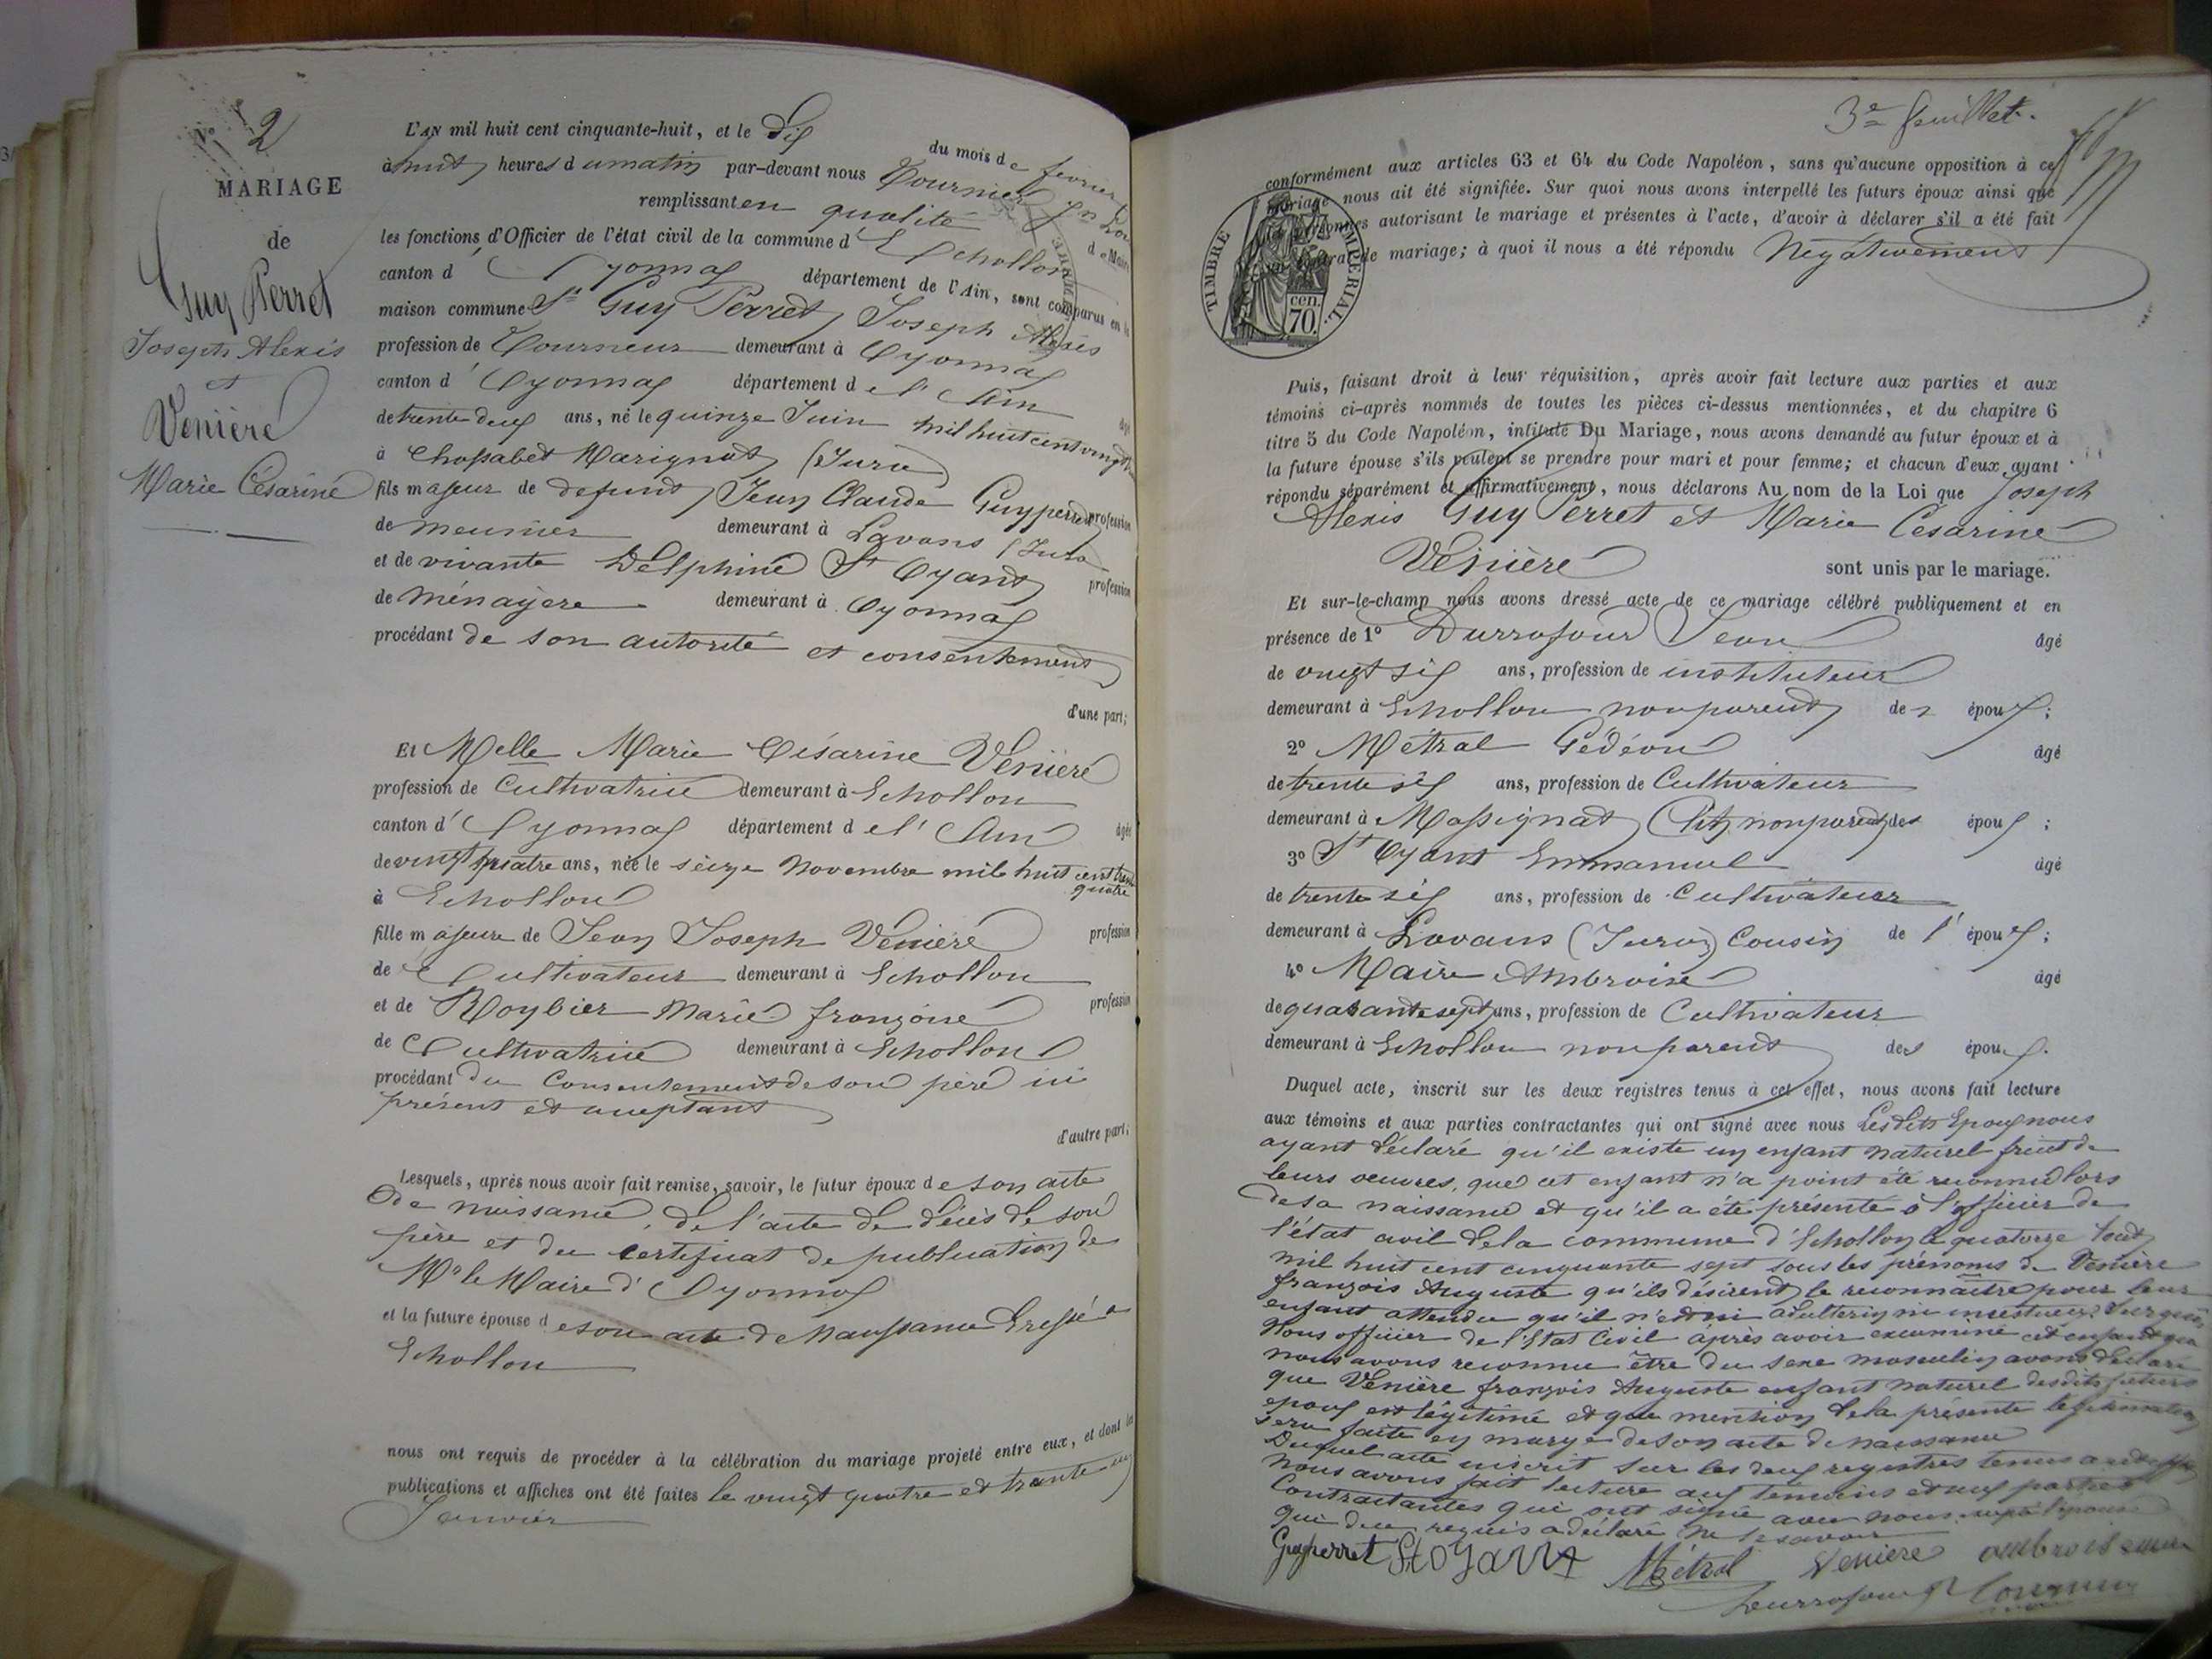 N° 2
MARIAGE
de
Guy Perret
Joseph Alexis
et
Venière
Marie Césarine
L'AN mil huit cent cinquante-huit, et le Dix du mois de fevrier
à huit heures du matin par-devant nous Tournier Jn
remplissant en qualité de Maire
les fonctions d'Officier de l'état civil de la commune d'Echollon
canton d'Oyonnax département de l'Ain, sont comparus en la
maison commune Sr Guy Perret Joseph Alexis
profession de Tourneur demeurant à Oyonnax
canton d'Oyonnax département de l'Ain âgé
de trente deux ans, né le quinze Juin mil huit cent vingt
à Chassabet Marignat (Jura)
fils majeur de defunt Jean Claude Guyperret profession
de meunier demeurant à Lavans (Jura
et de vivante Delphine St Oyant profession
de ménagère demeurant à Oyonnax
procédant de son autorité et consentement
d'une part;
Et Melle Marie Césarine Venière
profession de Cultivatrice demeurant à Echollon
canton d'Oyonnax département de l'Ain âgée
de vingt quatre ans, née le seize Novembre mil huit cent trente
quatre
à Echollon
fille majeure de Jean Joseph Venière profession
de Cultivateur demeurant à Echollon
et de Roybier Marie françoise profession
de Cultivatrice demeurant à Echollon
procédant du Consentement de son père ici
présent et acceptant
d'autre part;
Lesquels, après nous avoir fait remise, savoir, le futur époux de son acte
de naissance, de l'acte de décès de son
père et du certificat de publication de
Mr le Maire d'Oyonnax
et la future épouse de son acte de Naissance dressé à
Echollon
nous ont requis de procéder à la célébration du mariage projeté entre eux, et dont les
publications et affiches ont été faites le vingt quatre et trente un
Janvier
3e feuillet.
conformément aux articles 63 et 64 du Code Napoléon, sans qu'aucune opposition à ce
mariage nous ait été signifiée. Sur quoi nous avons interpellé les futurs époux ainsi que
personnes autorisant le mariage et présentes à l'acte, d'avoir à déclarer s'il a été fait
de mariage; à quoi il nous a été répondu Négativement
TIMBRE IMPERIAL.
cen.
70.
Puis, faisant droit à leur réquisition, après avoir fait lecture aux parties et aux
témoins ci-après nommés de toutes les pièces ci-dessus mentionnées, et du chapitre 6
titre 5 du Code Napoléon, intitulé Du Mariage, nous avons demandé au futur époux et à
la future épouse s'ils veulent se prendre pour mari et pour femme; et chacun d'eux ayant
répondu séparément et affirmativement, nous déclarons Au nom de la Loi que Joseph
Alexis Guy Perret et Marie Césarine
Vénière sont unis par le mariage.
Et sur-le-champ nous avons dressé acte de ce mariage célébré publiquement et en
présence de 1° Durrafour Jean âgé
de vingt six ans, profession de instituteur
demeurant à Echollon non parent des époux;
2° Métral Gédéon âgé
de trente six ans, profession de Cultivateur
demeurant à Massignat non parent des époux;
3° St Oyant Emmanuel âgé
de trente six ans, profession de Cultivateur
demeurant à Lavans (Jura) Cousin de l'époux;
4° Maire Ambroise âgé
de quarante sept ans, profession de Cultivateur
demeurant à Echollon non parent des époux.
Duquel acte, inscrit sur les deux registres tenus à cet effet, nous avons fait lecture
aux témoins et aux parties contractantes qui ont signé avec nous Lesdits Epoux nous
ayant déclaré qu'il existe un enfant naturel fruit de
leurs oeuvres, que cet enfant n'a point été reconnu lors
de sa naissance et qu'il a été présenté à l'officier de
l'état civil de la commune d'Echollon le quatorze Aout
mil huit cent cinquante sept sous les prénoms de Venière
françois Auguste qu'ils désirent le reconnaître pour leur
enfant attendu qu'il n'est ni adulterin ni incestueux. Sur quoi
Nous officier de l'Etat Civil après avoir examiné cet enfant que
nous avons reconnu être du sexe masculin avons déclaré
que Venière françois Auguste enfant naturel desdits futurs
epoux est légitimé et que mention de la présente légitimation
sera faite en marge de son acte de naissance
Duquel acte inscrit sur les deux registres tenus à cet effet
Nous avons fait lecture aux temoins et aux parties
Contractantes qui ont signé avec nous, excepté l'épouse
qui de ce requis a déclaré ne le savoir
Guyperret StOyant Métral Venière ambroise maire
Durrafour Tournier